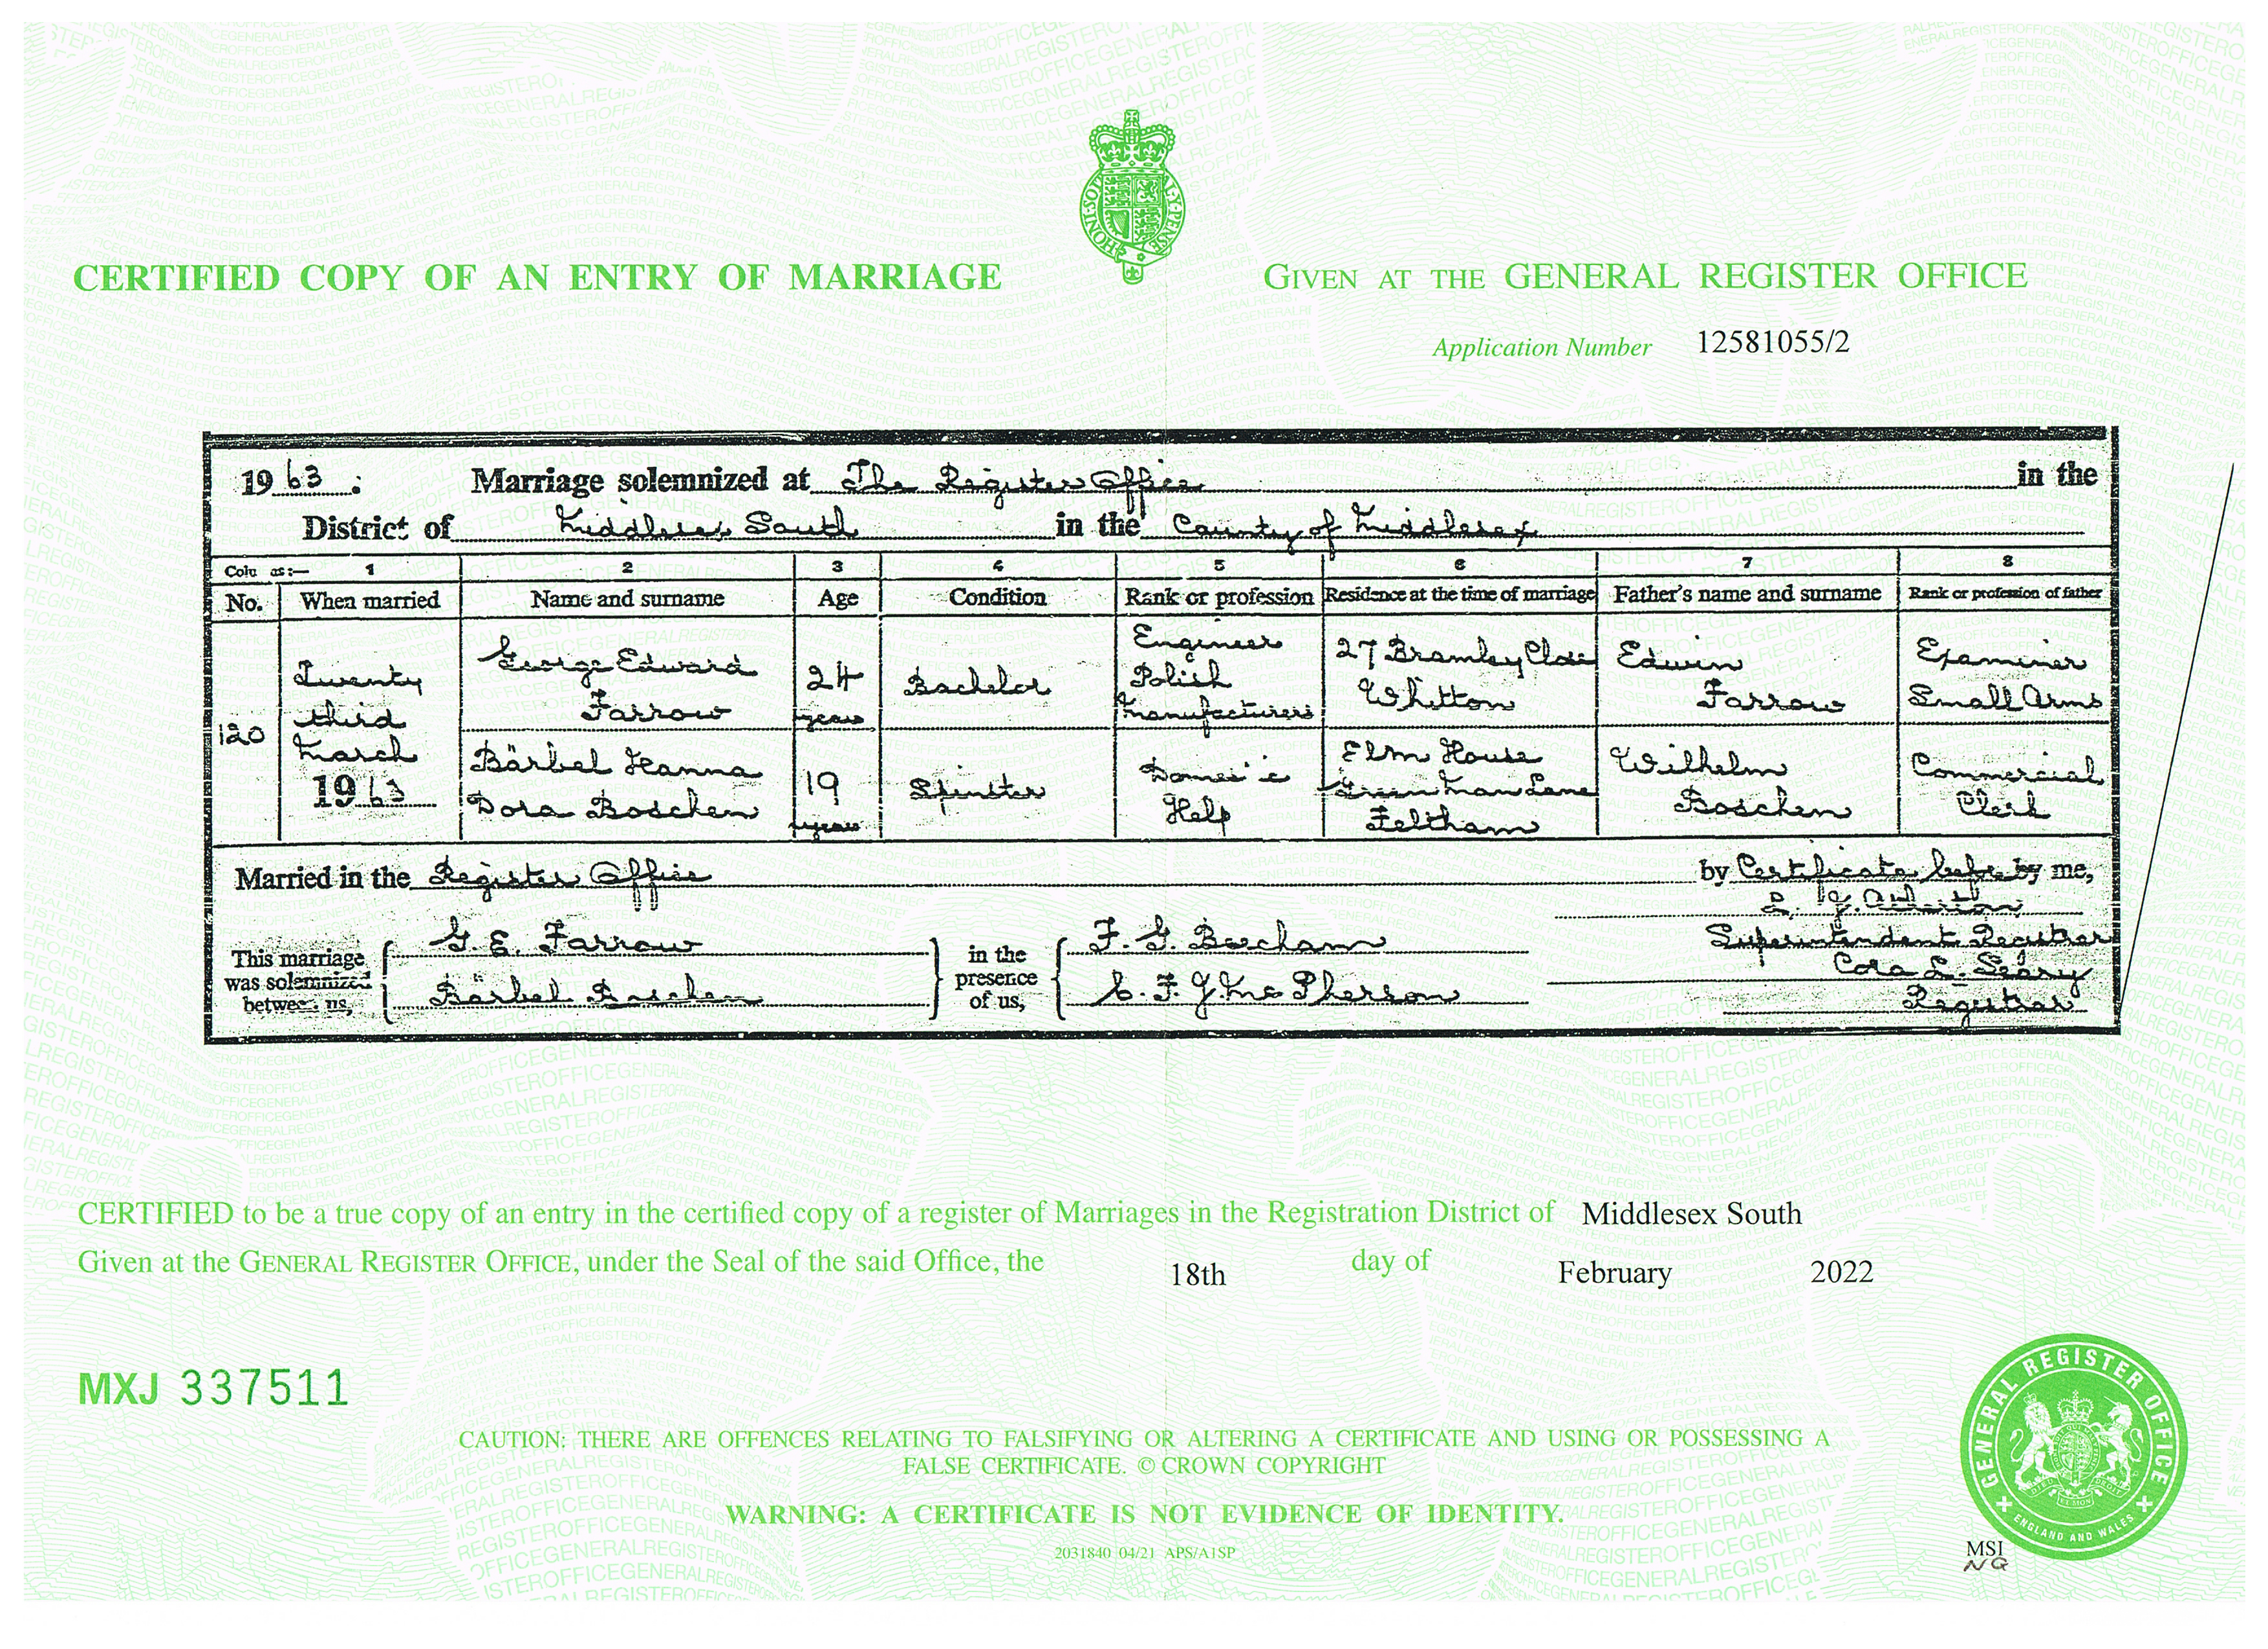 CERTIFIED COPY OF AN ENTRY OF MARRIAGE
HONI·SOIT ·Y·PENSE
GIVEN AT THE GENERAL REGISTER OFFICE
Application Number 12581055/2
1963. Marriage solemnized at The Register Office in the
District of Middlesex South in the County of Middlesex
Colu as:— 1 2 3 4 5 6 7 8
No. When married Name and surname Age Condition Rank or profession Residence at the time of marriage Father's name and surname Rank or profession of father
120
Twenty
third
March
1963
George Edward
Farrow
24
years
Bachelor
Engineer
Polish
Manufacturers
27 Bramley Close
Whitton
Edwin
Farrow
Examiner
Small Arms
Bärbel Hanna
Dora Boschen
19
years
Spinster
Domestic
Help
Elm House
Green Man Lane
Feltham
Wilhelm
Boschen
Commercial
Clerk
Married in the Register Office by Certificate before by me,
Superintendent Registrar
Cora L. Seary
Registrar
This marriage
was solemnized
between us,
G. E. Farrow
Bärbel Boschen
in the
presence
of us,
F. G.
C. F. J. McPherson
CERTIFIED to be a true copy of an entry in the certified copy of a register of Marriages in the Registration District of Middlesex South
Given at the GENERAL REGISTER OFFICE, under the Seal of the said Office, the 18th day of February 2022
MXJ 337511
CAUTION: THERE ARE OFFENCES RELATING TO FALSIFYING OR ALTERING A CERTIFICATE AND USING OR POSSESSING A
FALSE CERTIFICATE. © CROWN COPYRIGHT
WARNING: A CERTIFICATE IS NOT EVIDENCE OF IDENTITY.
2031840 04/21 APS/A1SP
GENERAL REGISTER OFFICE
ENGLAND AND WALES
MSI
NG